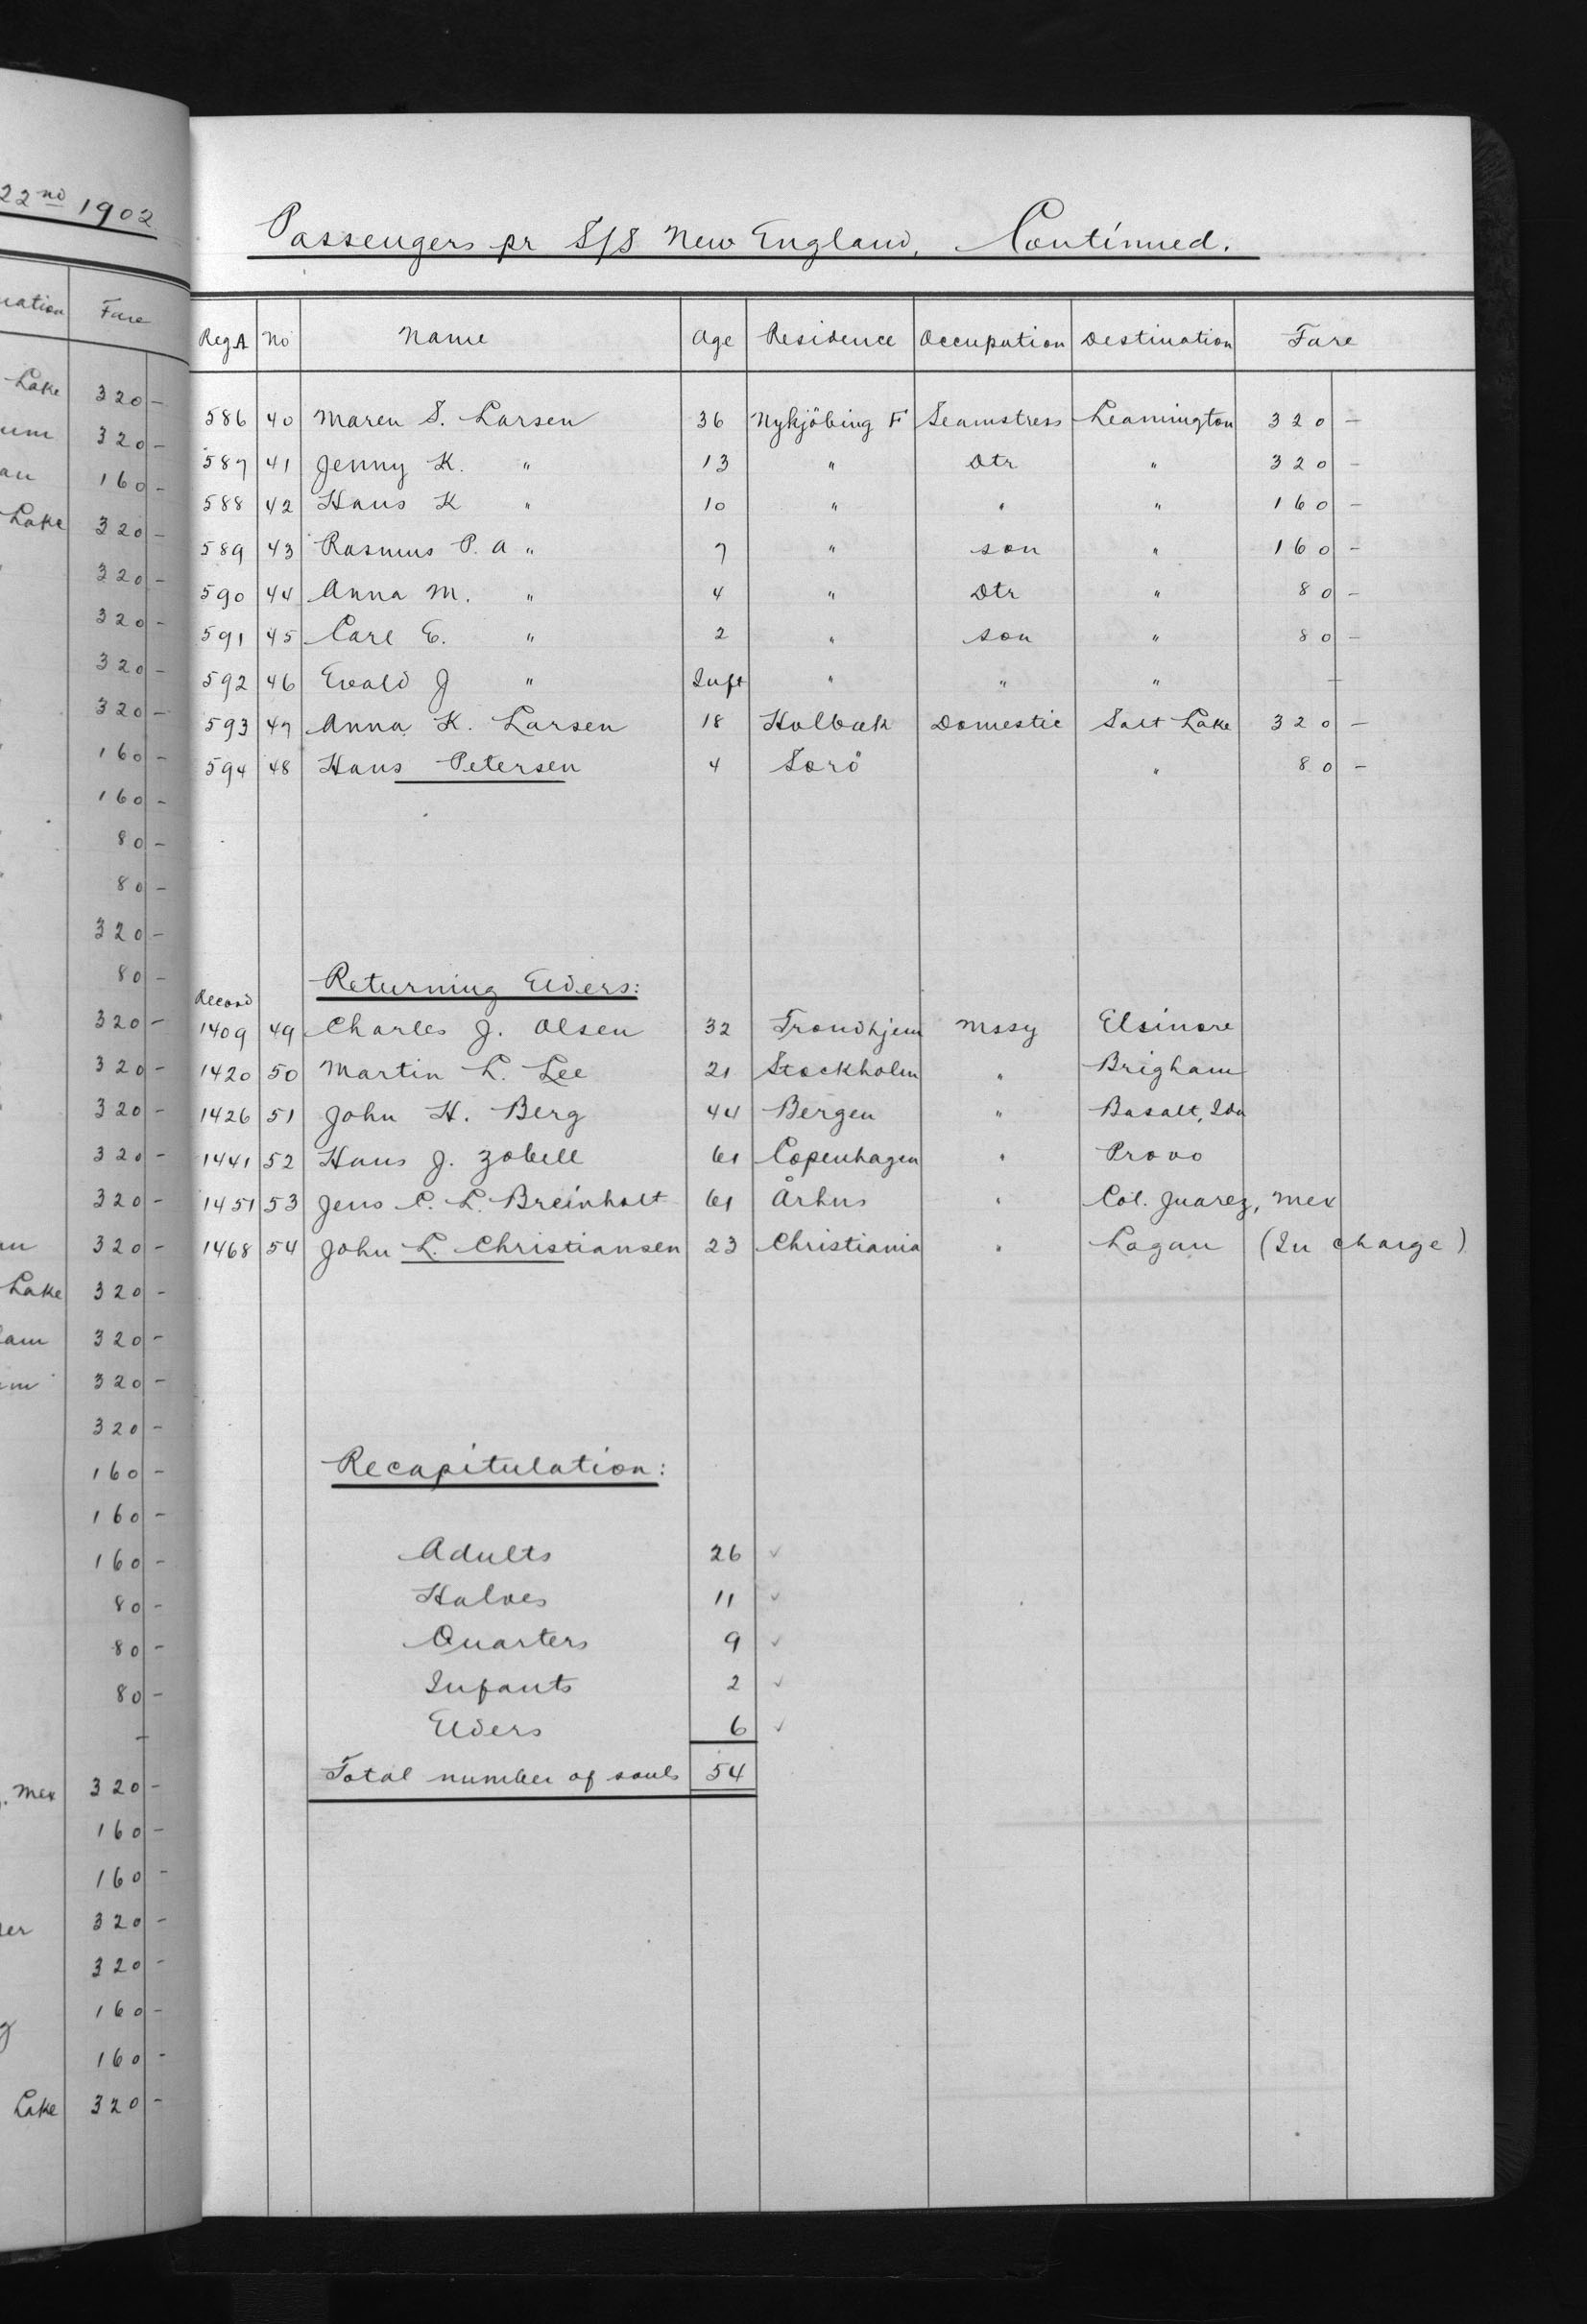 22nd 1902
Fare
Lake 320 -
320 -
160 -
Lake 320 -
320 -
320 -
320 -
320 -
160 -
160 -
80 -
80 -
320 -
80 -
320 -
320 -
320 -
320 -
320 -
320 -
Lake 320 -
320 -
320 -
320 -
160 -
160 -
160 -
80 -
80 -
80 -
-
Mex 320 -
160 -
160 -
320 -
320 -
160 -
160 -
Lake 320 -
Passengers pr S/S New England, Continued.
Reg A No Name Age Residence Occupation Destination Fare
586 40 Maren S. Larsen 36 Nykjöbing F Seamstress Leamington 320 -
587 41 Jenny K. " 13 " Dtr " 320 -
588 42 Hans K " 10 " " " 160 -
589 43 Rasmus P. A " 7 " son " 160 -
590 44 Anna M. " 4 " Dtr " 80 -
591 45 Carl E. " 2 " son " 80 -
592 46 Evald J " Inft " " " -
593 47 Anna K. Larsen 18 Holbæk Domestic Salt Lake 320 -
594 48 Hans Petersen 4 Sorö " 80 -
Returning Elders:
Record
1409 49 Charles J. Olsen 32 Trondhjem Mssy Elsinore
1420 50 Martin L. Lee 21 Stockholm " Brigham
1426 51 John H. Berg 44 Bergen " Basalt, Ida
1441 52 Hans J. Zobell 61 Copenhagen " Provo
1451 53 Jens C. L. Breinholt 61 Århus " Col. Juarez, Mex
1468 54 John L. Christiansen 23 Christiania " Logan (In charge)
Recapitulation:
Adults 26 ✓
Halves 11 ✓
Quarters 9 ✓
Infants 2 ✓
Elders 6 ✓
Total number of souls 54